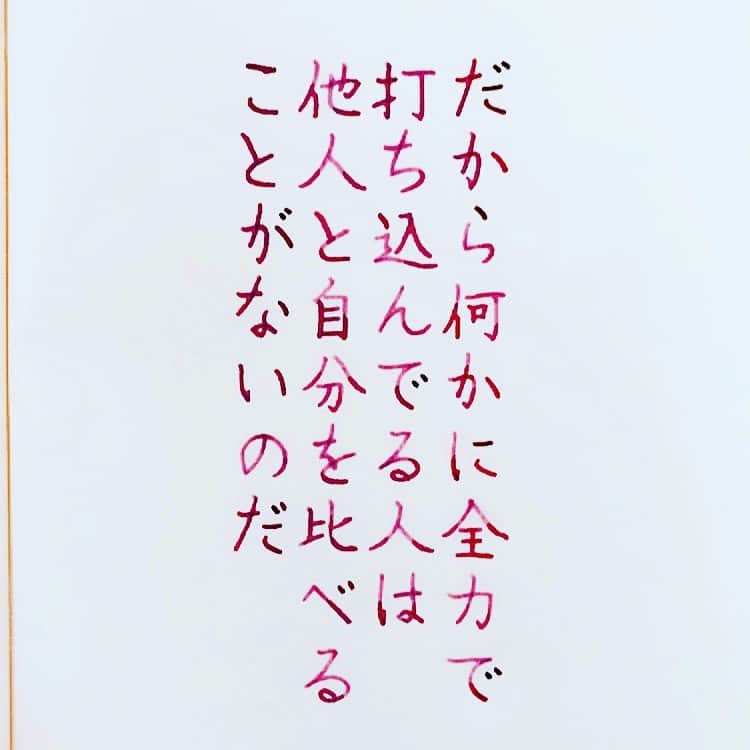 だから何かに全力で
打ち込んでる人は
他人と自分を比べる
ことがないのだ